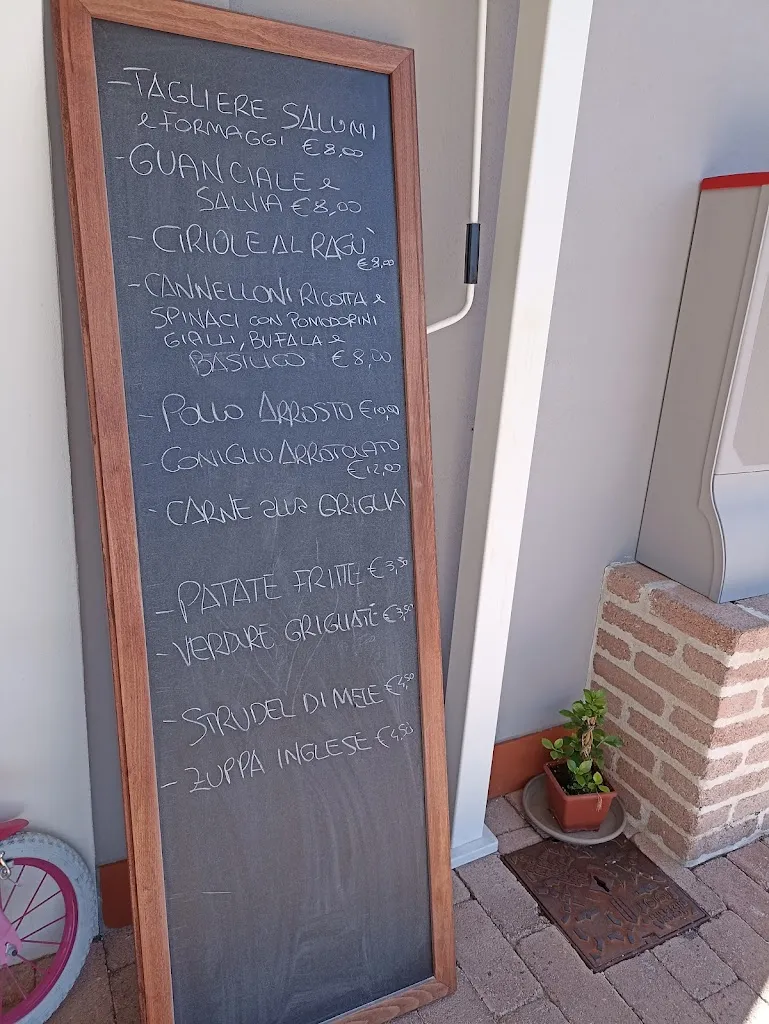 - TAGLIERE SALUMI
e FORMAGGI €8,00
- GUANCIALE e
SALVIA €8,00
- CIRIOLE AL RAGÙ
€8,00
- CANNELLONI RICOTTA e
SPINACI CON POMODORINI
GIALLI, BUFALA e
BASILICO €8,00
- POLLO ARROSTO €10,00
- CONIGLIO ARROTOLATO
€12,00
- CARNE alla GRIGLIA
- PATATE FRITTE €3,50
- VERDURE GRIGLIATE €3,50
- STRUDEL DI MELE €4,50
- ZUPPA INGLESE €4,50